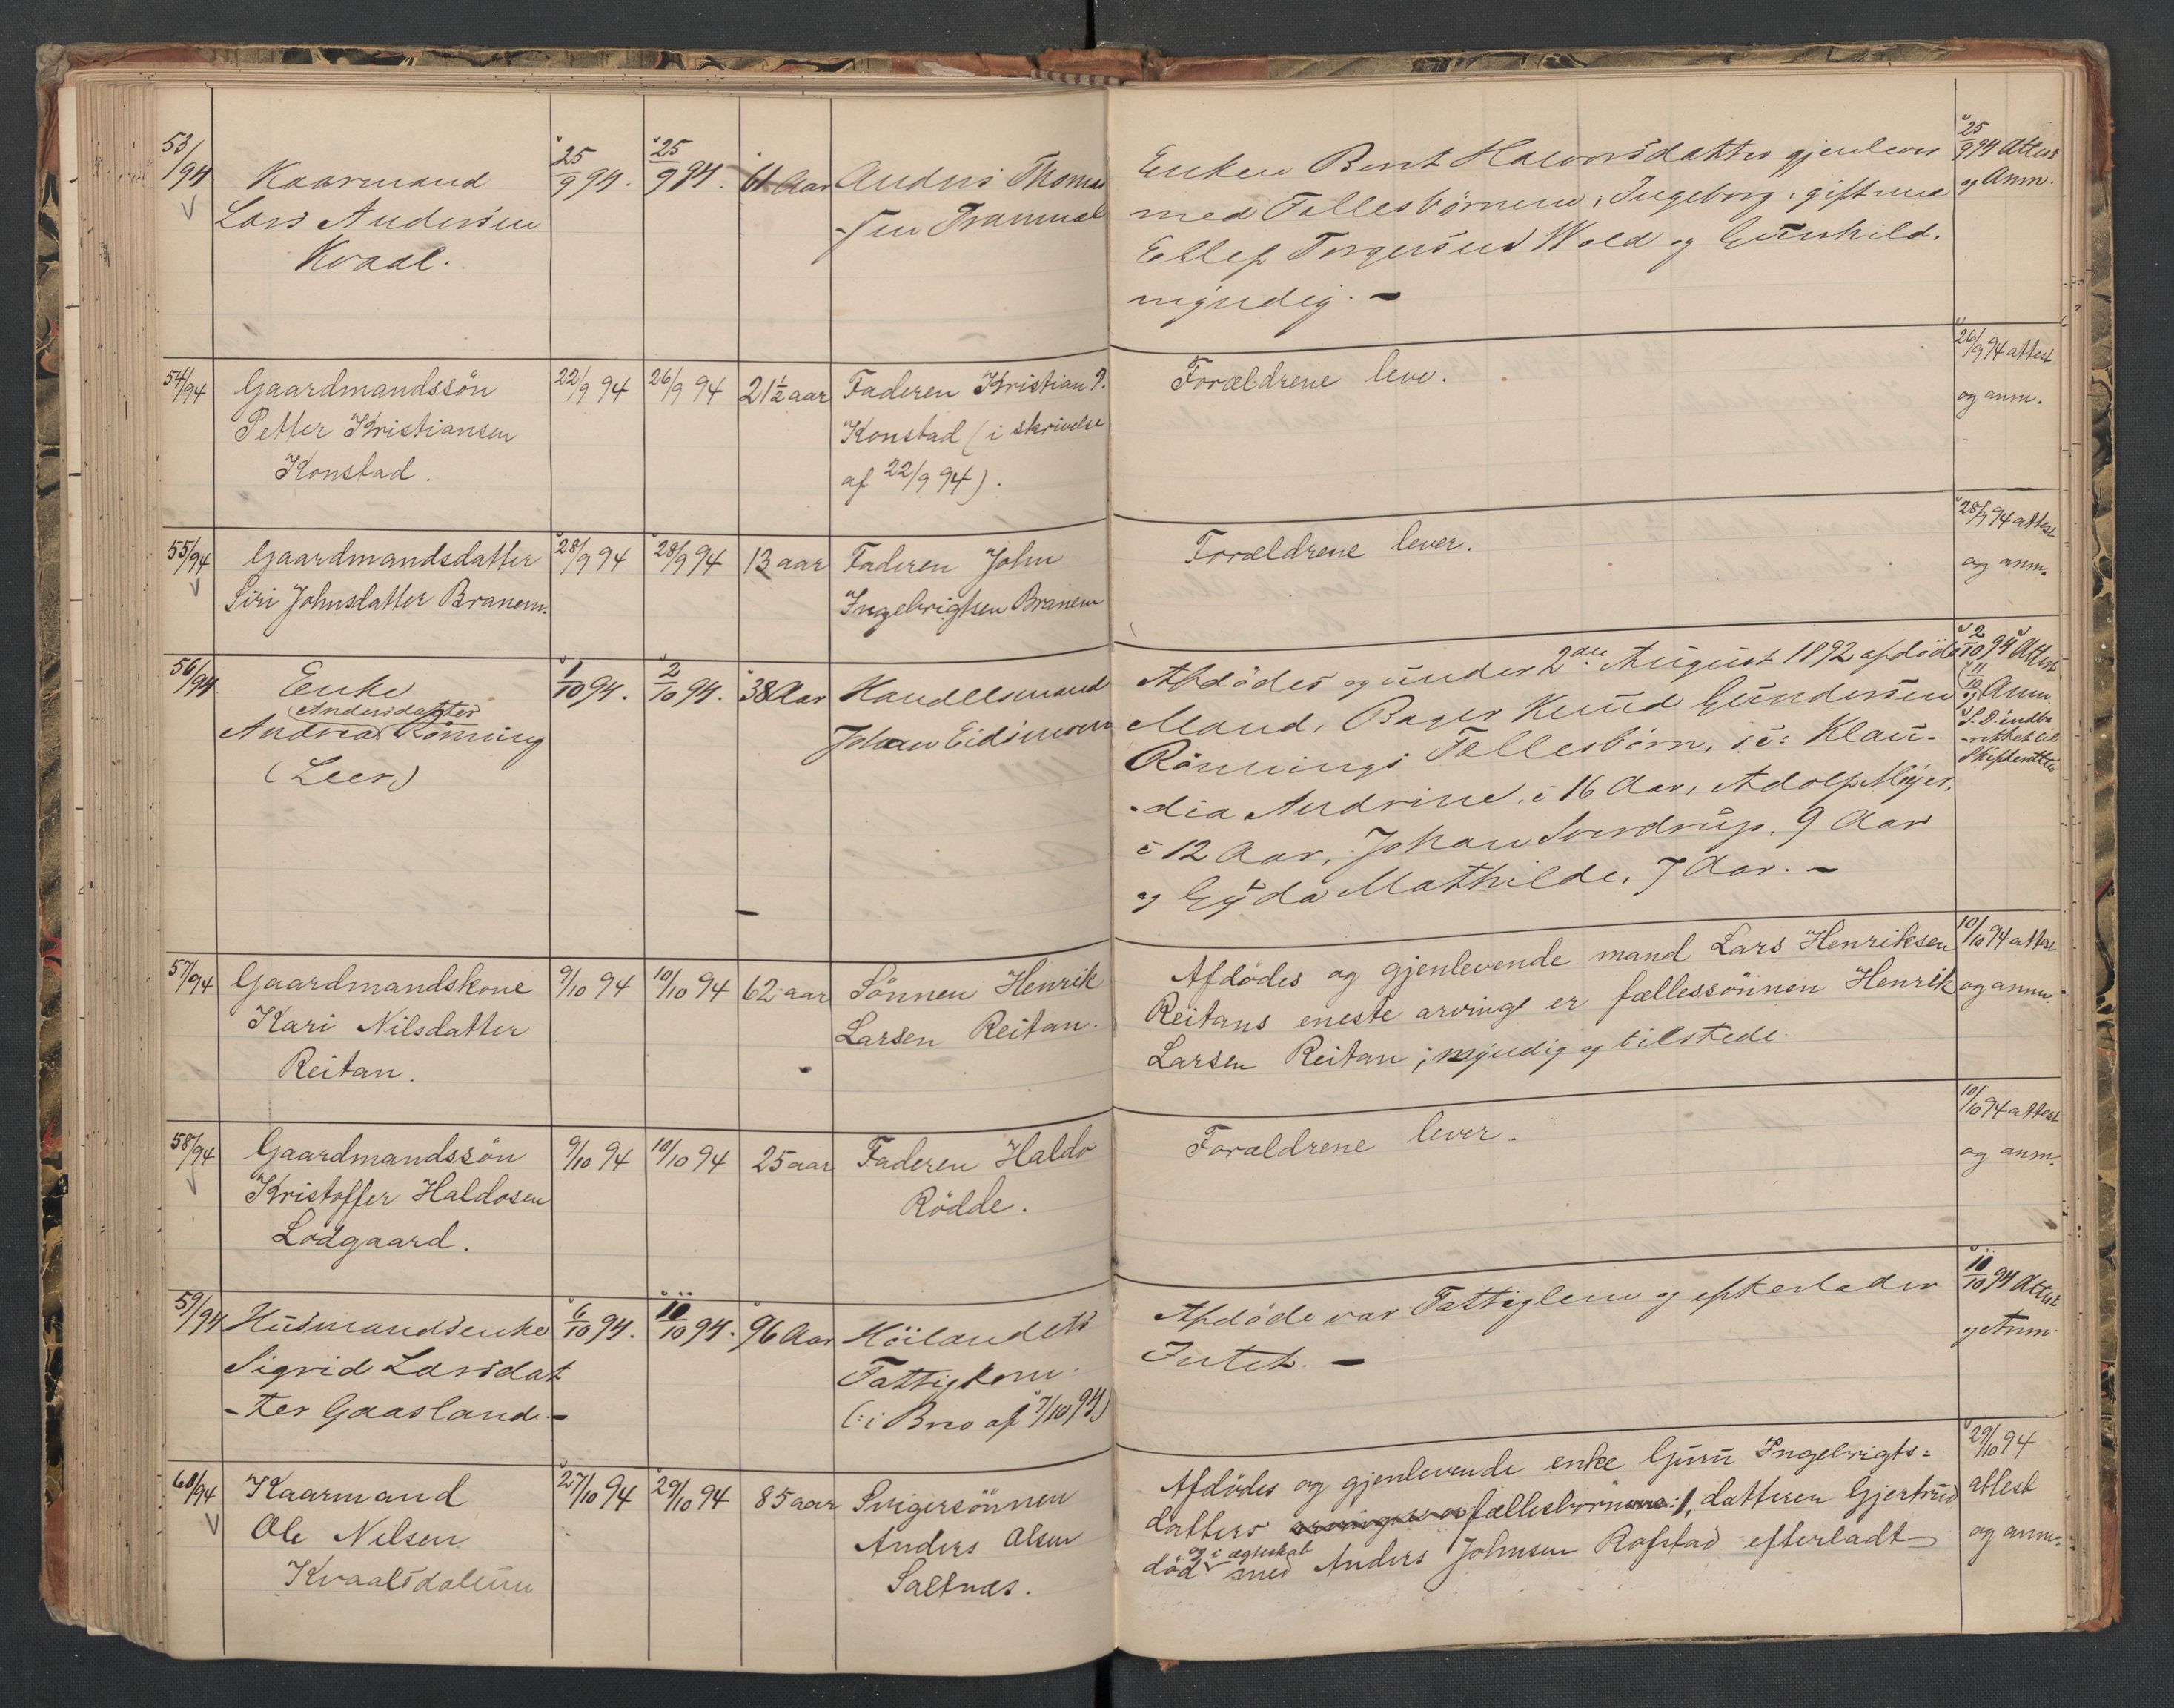 53/94
Kaarmand
Lars Andersen
Kvaal.
25/9 94.
25/9 94.
61 Aar
Anders Thomas
-sen Trammal
Enken Berit Halvorsdatter gjenlever
med Fællesbörnene, Ingeborg, gift med
Ellef Torgersen Wold og Gunhild,
myndig. -
25/9 94 Attest
og Anm.
54/94
Gaardmandssön
Petter Kristiansen
Konstad.
22/9 94
26/9 94
21½ aar
Faderen Kristian P.
Konstad (i skrivelse
af 22/9 94).
Forældrene leve.
26/9 94 attest
og anm.
55/94
Gaardmandsdatter
Siri Johnsdatter Branem.
28/9 94
28/9 94
13 aar
Faderen John
Ingebrigtsen Branem
Forældrene lever.
28/9 94 attest
og anm.
56/94
Enke
Andersdatter
Andrea Rönning
(Leer)
1/10 94.
2/10 94.
38 Aar
Handelsmand
Johan Eidsmoen
Afdödes og under 2den August 1892 afdöde
Mand, Bager Knud Gundersen
Rönnings Fællesbörn, er: Klau-
-dia Andrine, i 16 Aar, Adolf Meyer,
i 12 Aar, Johan Sverdrup, 9 Aar
og Gyda Mathilde, 7 Aar. -
2/10 94 Attest
11/10 og Anm.
S. D. indbe
-rettet til
Skifteretten
57/94
Gaardmandskone
Kari Nilsdatter
Reitan.
9/10 94
10/10 94
62 aar
Sönnen Henrik
Larsen Reitan.
Afdödes og gjenlevende mand Lars Henriksen
Reitans eneste arving er fællessönnen Henrik
Larsen Reitan; myndig og tilstede.
10/10 94 attest
og anm.
58/94
Gaardmandssön
Kristoffer Haldosen
Lodgaard.
9/10 94
10/10 94
25 aar
Faderen Haldo
Rödde.
Forældrene lever.
10/10 94 attest
og anm.
59/94
Husmandsenke
Sigrid Larsdat
-ter Gaasland. -
6/10 94.
10/10 94.
96 Aar
Höilandets
Fattigkom.
(: i Brev af 7/10 94)
Afdöde var Fattiglem og efterlader
Intet. -
10/10 94 Attest
og Anm.
60/94
Kaarmand
Ole Nilsen
Kvaalsdalen
27/10 94
29/10 94
85 aar
Svigersönnen
Anders Olsen
Saltnæs.
Afdödes og gjenlevende enke Guru Ingebrigts=
datters fællesbörn: 1, datteren Gjertrud
og i ægteskab
död med Anders Johnsen Rofstad efterladt
29/10 94
attest
og anm.